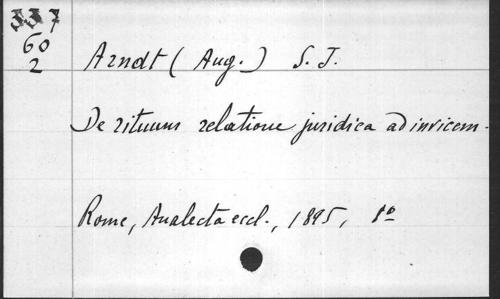 337
60
2
Arndt (Aug.) S. J.
De rituum relatione juridica ad invicem.
Rome, Analecta eccl., 1895, 8º